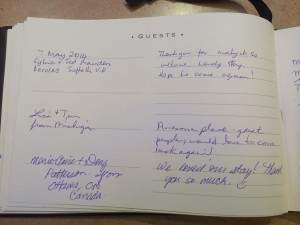 • GUESTS •
7 May 2014
Sylvia + Ted
Beccles Suffolk U.K
Thankyou for making it so
welcome. Lovely stay.
hope to come again!
Lisa + Tim
from Michigan
Awesome place - great
people, would love to come
back again!
Marie-Claire + Doug
Patterson
Ottawa, Ont
Canada
We loved our stay! Thank
you so much.